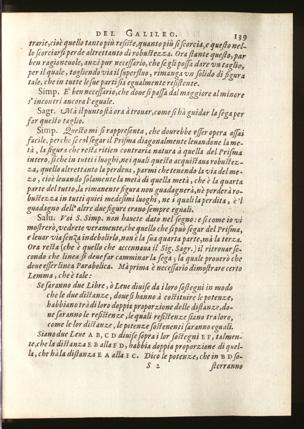 DEL GALILEO. 139
trarie, cioè quelle tanto più resiste, quanto più si scorcia, e questo nel-
lo scorciarsi perde altrettanto di robustezza. Ora stante questo, par
ben ragioneuole, anzi pur necessario, che se gli possa dare vn taglio,
per il quale, togliendo via il superfluo, rimanga vn solido di figura
tale, che in tutte le sue parti sia egualmente resistente.
Simp. E' ben necessario, che doue si passa dal maggiore al minore
s'incontri ancora l'eguale.
Sagr. Mà il punto stà ora à trouar, come si hà guidar la sega per
far questo taglio.
Simp. Questo mi si rappresenta, che dourebbe esser opera assai
facile, perche se col segar il Prisma diagonalmente leuandone la me-
tà, la figura che resta ritien contraria natura à quella del Prisma
intero, sì che in tutti i luoghi, ne i quali questo acquistaua robustez-
za, quello altrettanto la perdeua, parmi che tenendo la via del me-
zo, cioè leuando solamente la metà di quella metà, che è la quarta
parte del tutto, la rimanente figura non guadagnerà, nè perderà ro-
bustezza in tutti quei medesimi luoghi, ne i quali la perdita, e 'l
guadagno dell'altre due figure erano sempre eguali.
Salu. Voi S. Simp. non hauete dato nel segno: e sì come io vi
mostrerò, vedrete veramente, che quello che si può segar del Prisma,
e leuar via senza indebolirlo, non è la sua quarta parte, mà la terza.
Ora resta (che è quello che accennaua il Sig. Sagr.) il ritrouar se-
condo che linea si deue far camminar la sega; la quale prouerò che
deue esser linea Parabolica. Mà prima è necessario dimostrare certo
Lemma, che è tale:
Se saranno due Libre, ò Leue diuise da i loro sostegni in modo
che le due distanze, doue si hanno à costituire le potenze,
habbiano trà di loro doppia proporzione delle distanze, do-
ue saranno le resistenze, le quali resistenze siano tra loro,
come le lor distanze, le potenze sostenenti saranno eguali.
Siano due Leue A B, C D diuise sopra i lor sostegni E F, talmen-
te, che la distanza E B alla F D, habbia doppia proporzione di quel-
la, che hà la distanza E A alla F C. Dico le potenze, che in B D so-
S 2 sterranno